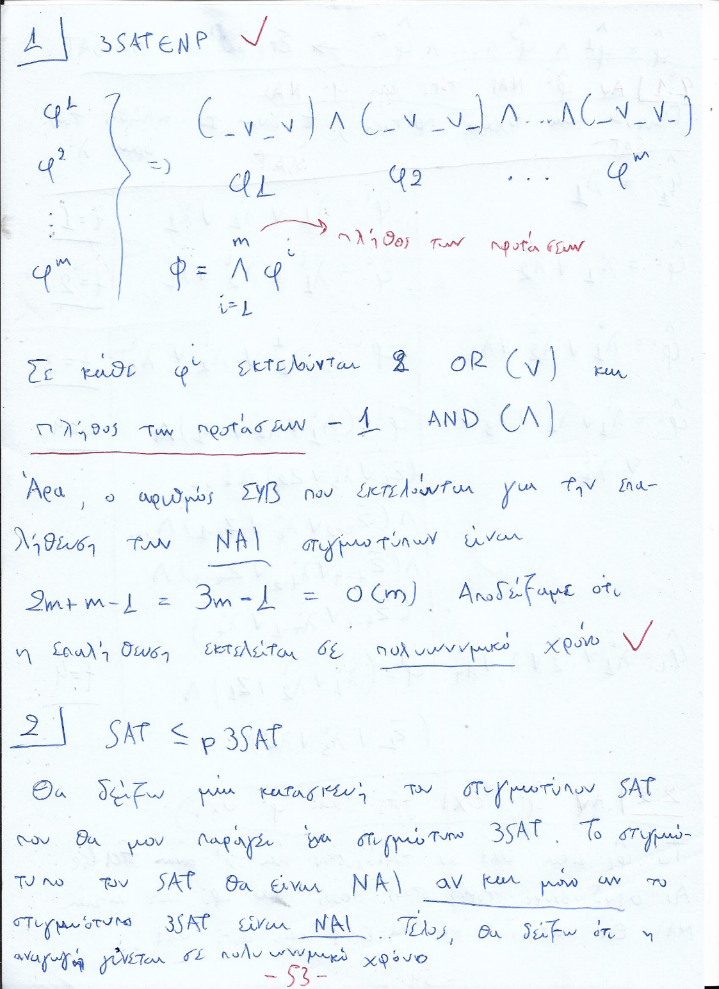 1 3SAT ∈ NP ✓
φ¹
φ²
⋮
φᵐ
=> (_ ∨ _ ∨ _) ∧ (_ ∨ _ ∨ _) ∧ ... ∧ (_ ∨ _ ∨ _)
φ1 φ2 ... φᵐ
m
φ = ∧ φⁱ → πλήθος των προτάσεων
i=1
Σε κάθε φⁱ εκτελούνται 2 OR (∨) και
πλήθος των προτάσεων - 1 AND (∧)
Άρα, ο αριθμός ΣΥΒ που εκτελούνται για την επα-
λήθευση των ΝΑΙ στιγμιοτύπων είναι
2m+m-1 = 3m-1 = O(m). Αποδείξαμε ότι
η επαλήθευση εκτελείται σε πολυωνυμικό χρόνο ✓
2 SAT ≤p 3SAT
Θα δείξω μια κατασκευή του στιγμιοτύπου SAT
που θα μου παράγει ένα στιγμιότυπο 3SAT. Το στιγμιό-
τυπο του SAT θα είναι ΝΑΙ αν και μόνο αν το
στιγμιότυπο 3SAT είναι ΝΑΙ. Τέλος, θα δείξω ότι η
αναγωγή γίνεται σε πολυωνυμικό χρόνο
- 53 -